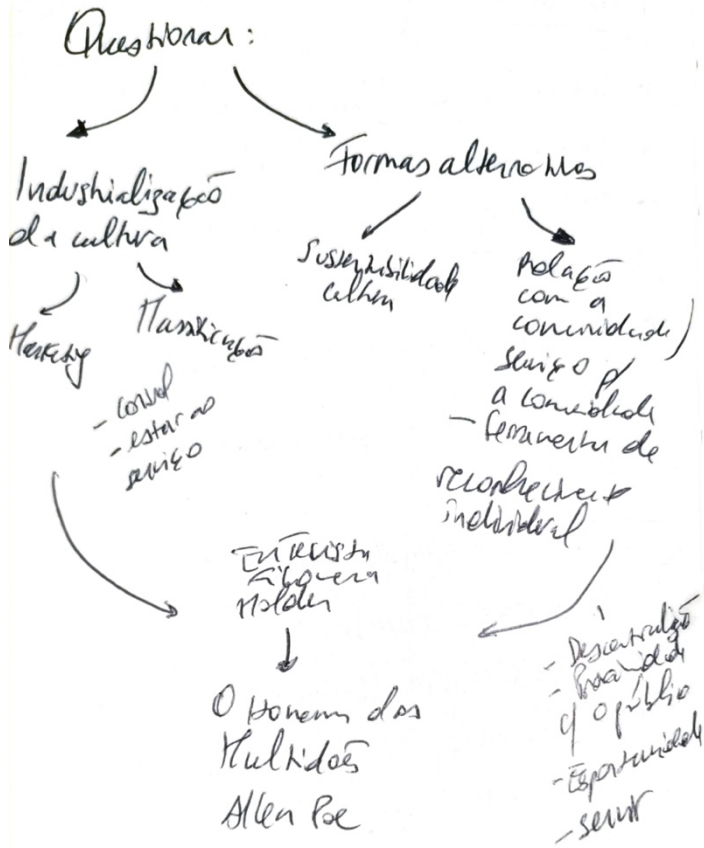 Questionar:
Industrialização
da cultura
Marketing
Massificação
- estar ao
serviço
Formas alternativas
Sustentabilidade
cultura
Relação
com a
comunidade
serviço p/
a comunidade
- ferramenta de
reconhecimento
individual
Entrevista
Molder
O Homem das
Multidões
Allen Poe
- Descentralização
- Proximidade
c/ o público
- Espontaneidade
- servir